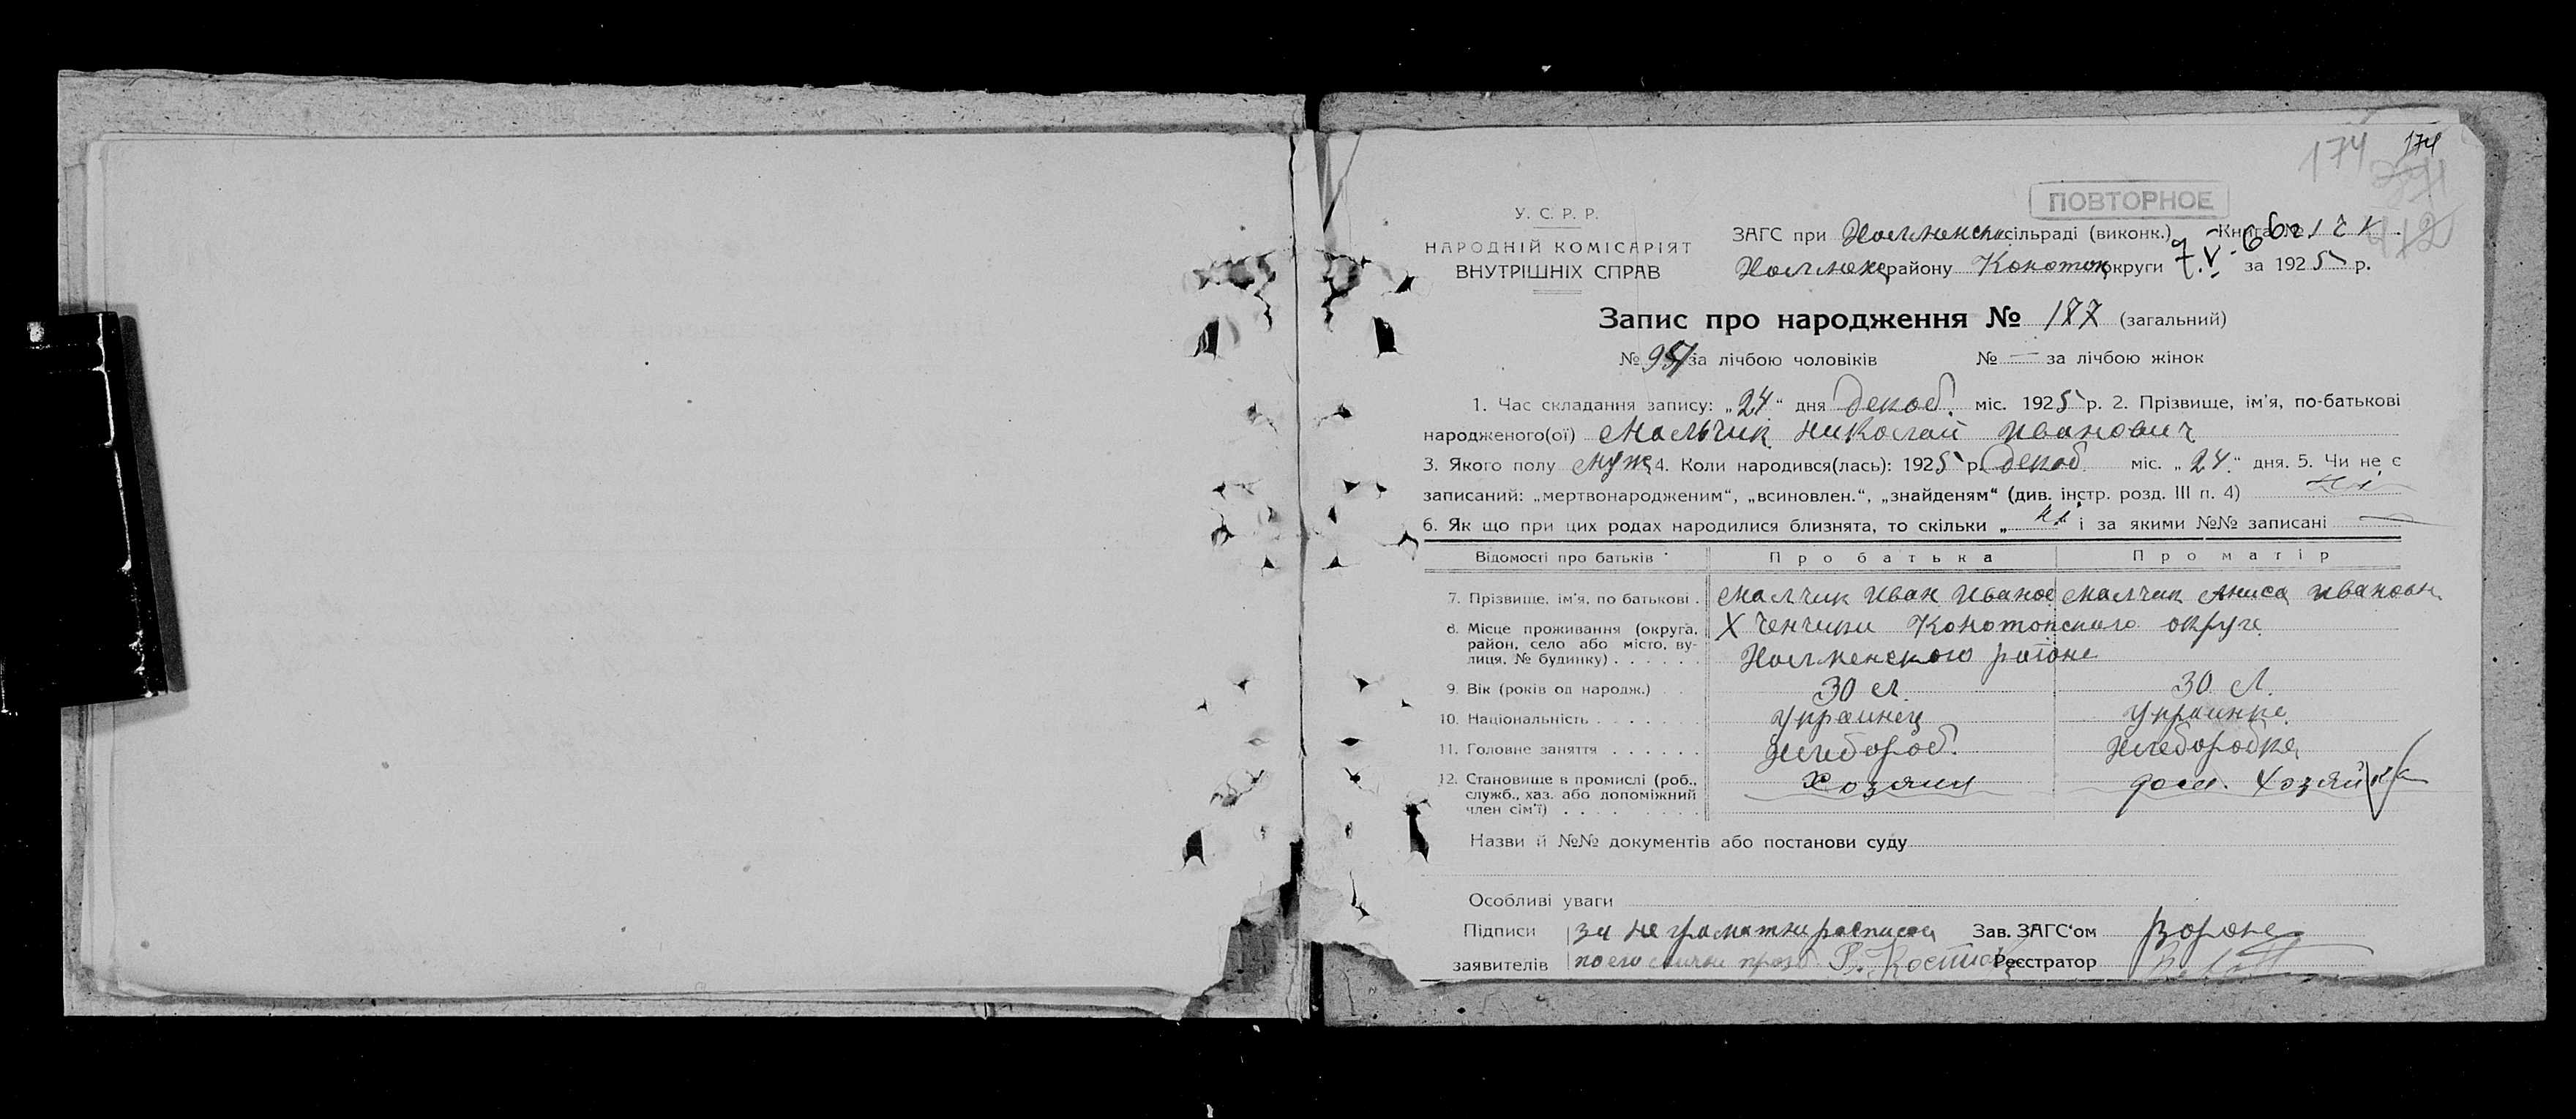 174 174
ПОВТОРНОЕ
У. С. Р. Р.
НАРОДНІЙ КОМІСАРІЯТ
ВНУТРІШНІХ СПРАВ
ЗАГС при Холменск. сільраді (виконк.) Книга №
Холменс району Конотоп округи за 1925 р.
Запис про народження № 187 (загальний)
№ за лічбою чоловіків № — за лічбою жінок
1. Час складання запису: „24“ дня декаб. міс. 1925 р. 2. Прізвище, ім'я, по-батькові
народженого(ої) Мальчик Николай Иванович
3. Якого полу муж 4. Коли народився(лась): 1925 р. декаб міс. „24“ дня. 5. Чи не є
записаний: „мертвонародженим“, „всиновлен.“, „знайденям“ (див. інстр. розд. III п. 4) ні
6. Як що при цих родах народилися близнята, то скільки „ ні і за якими №№ записані —
Відомості про батьків Про батька Про матір
7. Прізвище, ім'я, по батькові . Малчик Иван Иванов Малчик Аниса Ивановн
8. Місце проживання (округа, район, село або місто, вулиця, № будинку) . . . . . . Х Ченчики Конотопского округи
Холменского район
9. Вік (років од народж.) . . 30 л. 30 л.
10. Національність . . . . . . . Украинец Украинка
11. Головне заняття . . . . . . Хлебороб. Хлеборобка
12. Становище в промислі (роб., служб., хаз. або допоміжний член сім'ї) . . . . . . . . Хозяин дом. Хозяйка
Назви й №№ документів або постанови суду
Особливі уваги
Підписи за не грамотни расписал Зав. ЗАГС'ом Ворона
заявителів по его Реєстратор